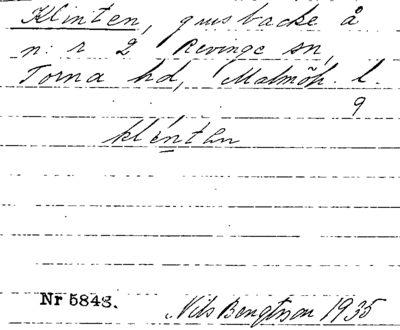 Klinten, grusbacke å
n:r 2 Revinge sn,
Torna hd, Malmöh. l.
9
klintən
Nr 5848. Nils Bengtson 1935